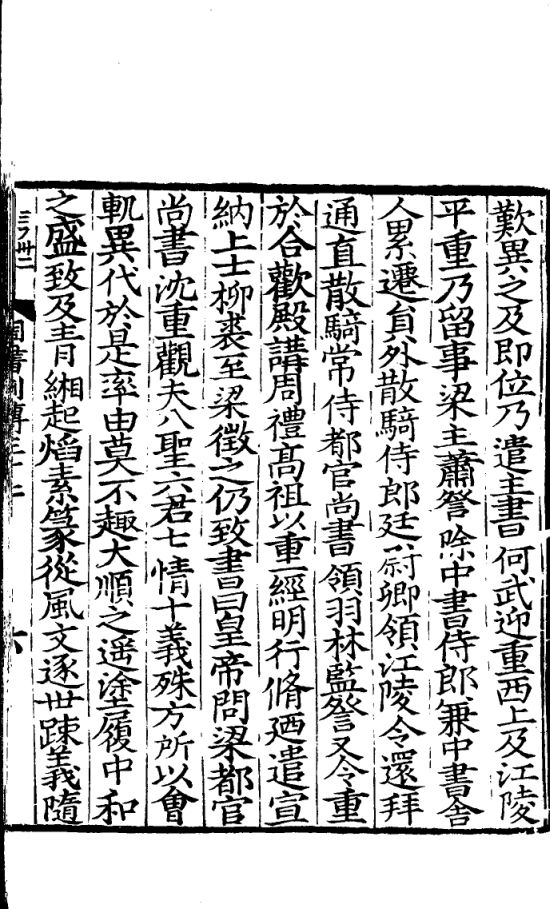 歎異之及即位乃遣主書何武迎重西上及江陵
平重乃留事梁主蕭詧除中書侍郎兼中書舍
人累遷員外散騎侍郎廷尉卿領江陵令還拜
通直散騎常侍都官尚書領羽林監詧又令重
於合歡殿講周禮髙祖以重經明行脩廼遣宣
納上士柳裘至梁徵之仍致書曰皇帝問梁都官
尚書沈重觀夫八聖六君七情十義殊方所以會
軌異代於是率由莫不趣大順之遥塗履中和
之盛致及青緗起焰素篆從風文逐世踈義隨
六